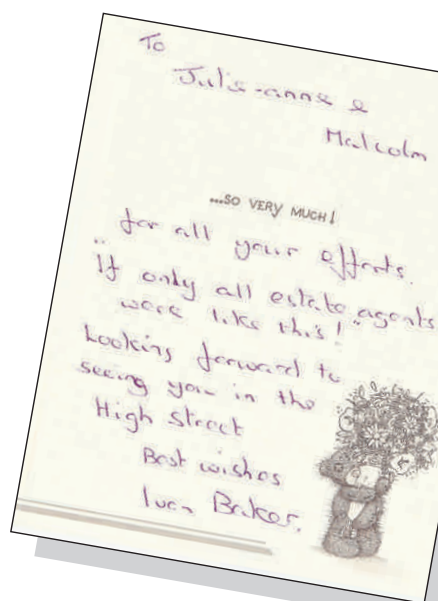 To
Julie-anne &
Malcolm
...SO VERY MUCH!
for all your efforts.
"If only all estate agents
were like this!"
Looking forward to
seeing you in the
High street
Best wishes
Ivan Baker.